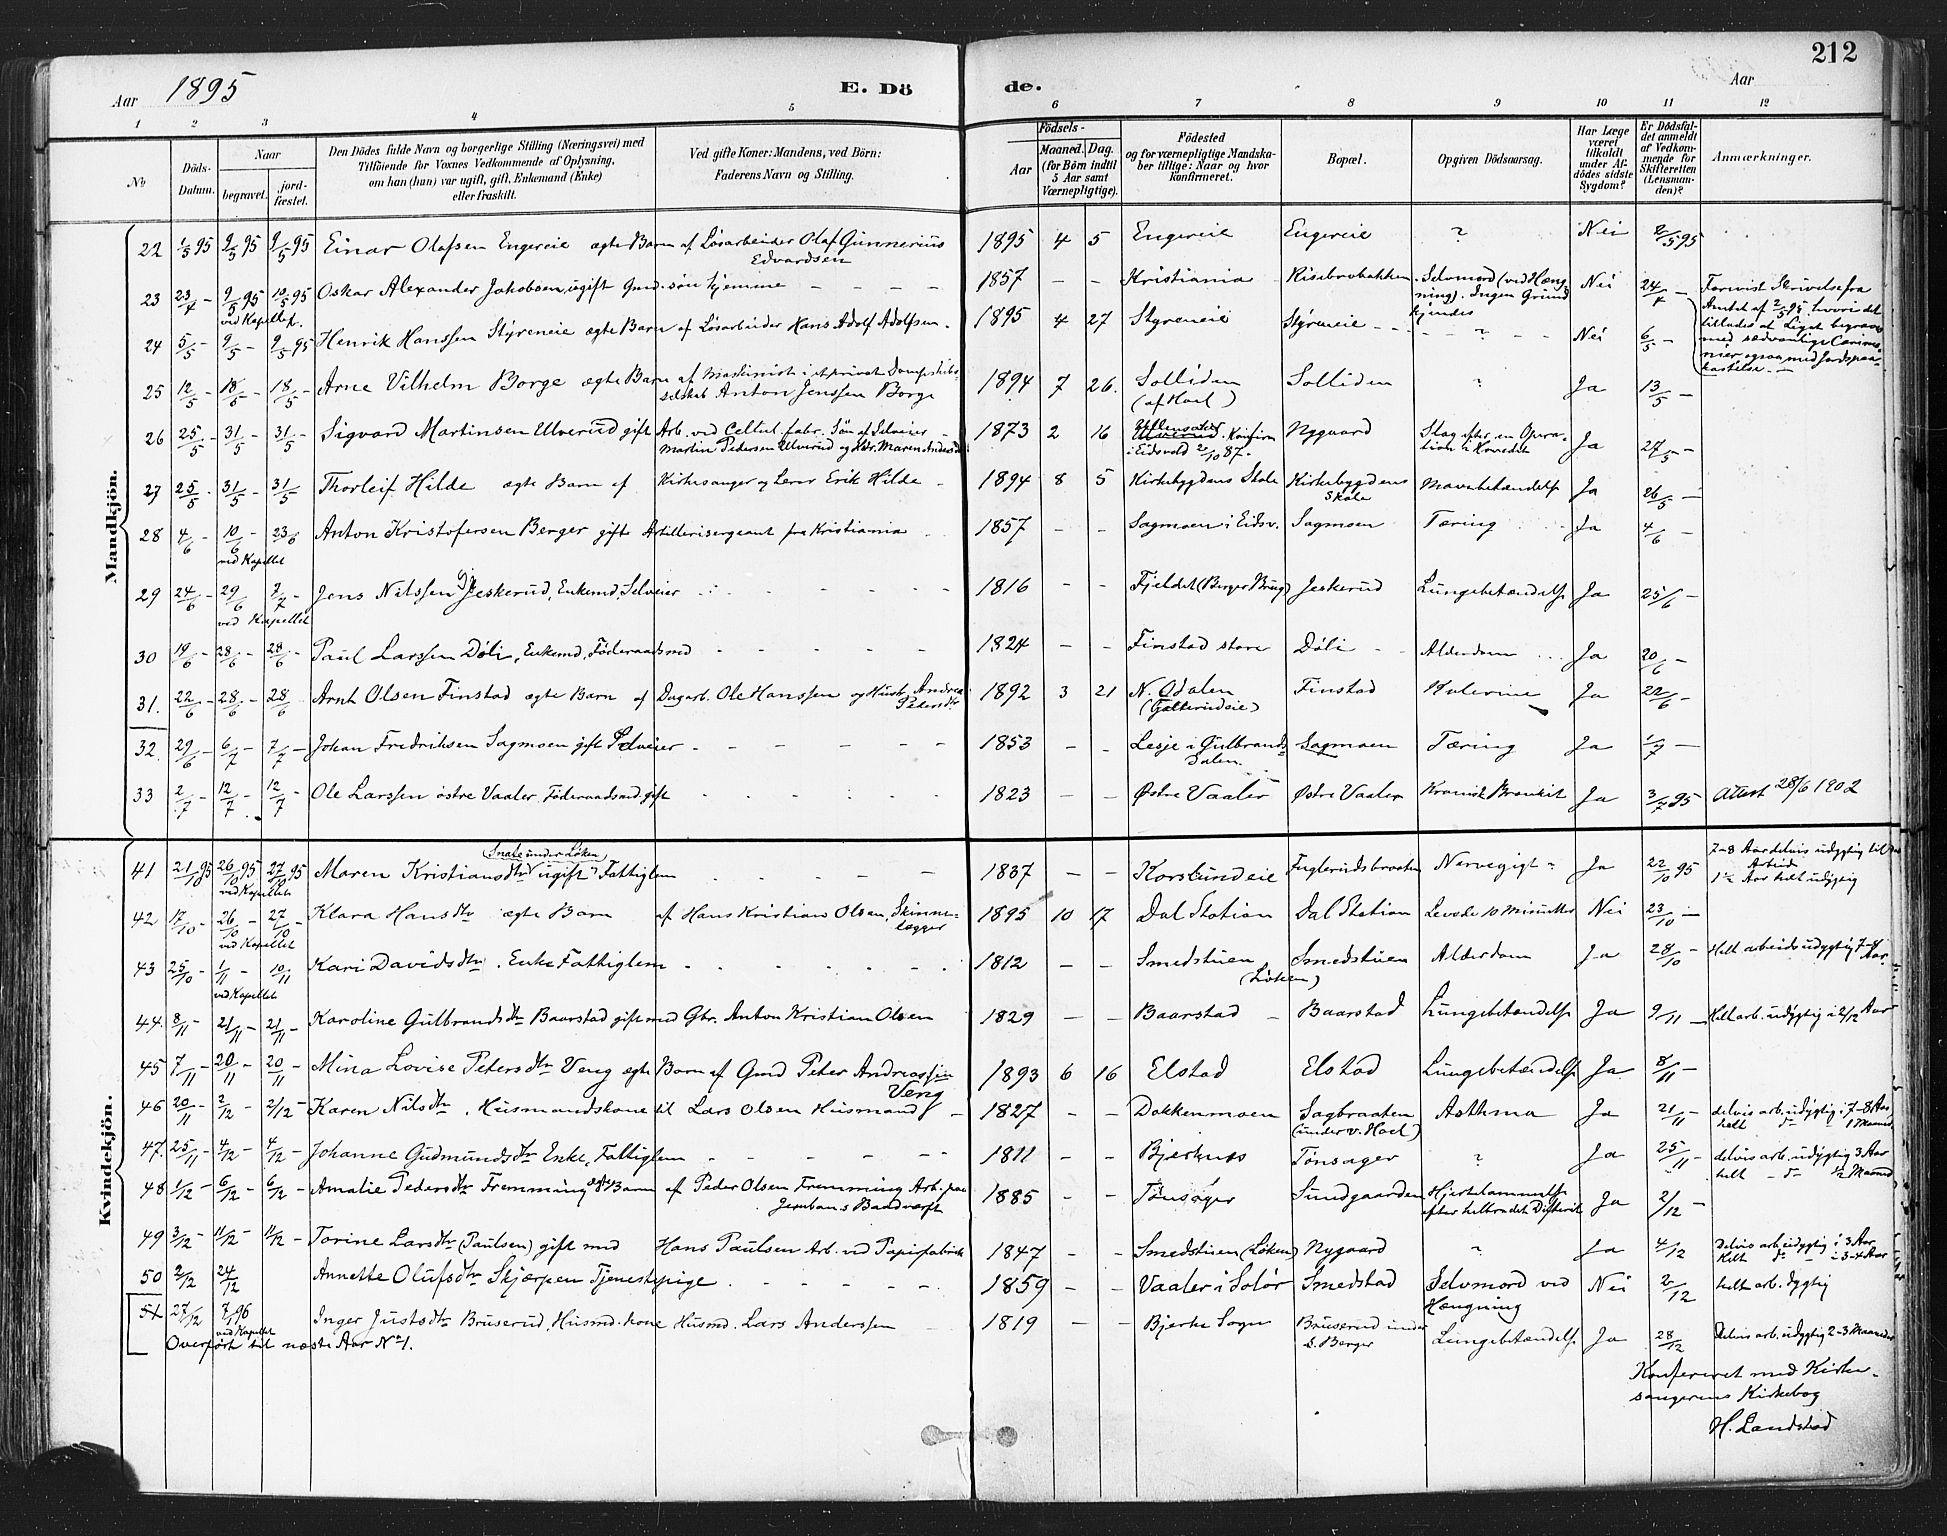 212
Aar 1895 E. Dö de. Aar
1 2 3 4 5 6 7 8 9 10 11 12
No
Döds-Datum.
Naar begravet. jordfæstet.
Den Dödes fulde Navn og borgerlige Stilling (Næringsvei) med
Tilföiende for Voxnes Vedkommende af Oplysning,
om han (hun) var ugift, gift, Enkemand (Enke)
eller fraskilt.
Ved gifte Koner: Mandens, ved Börn:
Faderens Navn og Stilling.
Födsels-
Aar Maaned. Dag.
(for Börn indtil
5 Aar samt
Værnepligtige).
Födested
og for værnepligtige Mandskaber tillige: Naar og hvor
konfirmeret.
Bopæl.
Opgiven Dödsaarsag.
Har Læge været tilkaldt under Afdödes sidste Sygdom?
Er Dödsfaldet anmeldt af Vedkommende for Skifteretten (Lensmanden)?
Anmærkninger.
Mandkjön.
22 1/5 95 9/5 95 9/5 95 Einar Olafsen Engereie ægte Barn af Løsarbeider Olaf Gunnerius Edvardsen 1895 4 5 Engereie Engereie ? Nei 2/5 95
23 23/4 - 9/5 95 ved Kapellet. 10/5 95 Oskar Alexander Jakobsen, ugift Gmd. søn hjemme 1857 - - Kristiania Risebrobakken Selvmord (ved Hængning). Ingen Grund kjendes Nei 24/4 - Forevist Skrivelse fra Amtet af 2/5 95 hvori det tillades at Liget begraves med sædvanlige Ceremonier ogsaa med Jordspaakastelse. -
24 5/5 - 9/5 - 9/5 95 Henrik Hanssen Styreneie ægte Barn af Løsarbeider Hans Adolf Adolfsen. 1895 4 27 Styreneie Styreneie ? Nei 6/5 -
25 12/5 - 18/5 - 18/5 - Arne Vilhelm Borge ægte Barn af Maskinist i et privat Dampskibsselskab Anton Jenssen Borge 1894 7 26. Solliden (af Hoel) Solliden ? Ja 13/5 -
26 25/5 - 31/5 - 31/5 - Sigvard Martinsen Ulverud gift Arb. ved Cellul. fabr. Søn af Selveier Martin Pedersen Ulverud og Hstr. Maren Andersdtr 1873 2 16 Konfirm. i Eidsvold 2/10 87. Nygaard Slag efter en Operation i Hovedet Ja 27/5 -
27 25/5 - 31/5 - 31/5 Thorleif Hilde ægte Barn af Kirkesanger og Lærer Erik Hilde 1894 8 5 Kirkebygdens Skole Kirkebygdens Skole Mavebetændelse Ja 26/5 -
28 4/6 - 10/6 - ved Kapellet 23/6 Anton Kristofersen Berger gift Artillerisergeant fra Kristiania 1857 - - Sagmoen i Eidsv. Sagmoen Tæring Ja 4/6 -
29 24/6 - 29/6 ved Kapellet 7/7 - Jens Nilssen Jeskerud, Enkemd. Selveier 1816 - - Fjeldet (Berger Brug) Jeskerud Lungebetændelse Ja 25/6 -
30 19/6 - 28/6 - 28/6 - Paul Larssen Døli, Enkemd, Føderaadsmd 1824 - - Finstad store Døli Alderdom Ja 20/6 -
31. 22/6 - 28/6 - 28/6 Arnt Olsen Finstad ægte Barn af Dagarb. Ole Hanssen og Hustr. Andrea Pedersdtr 1892 3 21 N. Odalen (Gotterudeie) Finstad Kolerine Ja 22/6 -
32 29/6 - 6/7 - 7/7 - Johan Fredriksen Sagmoen gift Selveier 1853 - - Lesje i Gulbrandsdalen. Sagmoen Tæring Ja 1/7 -
33 2/7 - 12/7 - 12/7 Ole Larssen østre Vaaler, Føderaadsmd. gift 1823 - - Østre Vaaler Østre Vaaler Kronisk Bronkit Ja 3/7 95 Attest 28/6 1902
Kvindekjön.
41 21/10 95 26/10 95 ved Kapellet 27/10 95 Maren Kristiansdtr (Snale under Løken) ugift Fattiglem 1837 - - Korslundeie Fuglerudsbraaten Nervegigt Ja 22/10 95 7-8 Aar delvis udygtig til Arbeid 1½ Aar helt udygtig
42 17/10 - 26/10 - ved Kapellet 27/10 - Klara Hansdtr ægte Barn af Hans Kristian Olsen, Skinnelægger 1895 10 17 Dal Station Dal Station Levede 10 Minutter Nei 23/10 -
43 25/10 - 1/11 - ved Kapellet 10/11 Kari Davidsdtr. Enke Fattiglem 1812 - - Smedstuen (Løken) Smedstuen Alderdom Ja 28/10 - Helt arbeidsudygtig 7-8 Aar.
44. 8/11 - 21/11 - 21/11 - Karoline Gulbrandsdtr Baarstad gift med Gbr. Anton Kristian Olsen 1829 - - Baarstad Baarstad Lungebetændelse Ja 9/11 - Helt arb. udygtig i 2/12 Aar
45 7/11 - 20/11 - 20/11 - Mina Lovise Petersdtr Veng ægte Barn af Gmd Peter Andreassen Veng 1893 6 16 Elstad Elstad Lungebetændelse Ja 8/11 -
46 20/11 2/12 - 2/12 - Karen Nilsdtr. Husmandskone til Lars Olsen Husmand 1827 - - Dokkenmoen Sagbraaten (under v. Hoel) Asthma Ja 21/11 - delvis arb. udygtig i 7-8 Aar, helt do 1 Maaned
47. 25/11 - 4/12 - 4/12 - Johanne Gudmundsdtr Enke, Fattiglem 1811 - - Bjerknes Tønsager ? Ja 25/11 - delvis arb. udygtig 3 Aar helt - do - ½ Maaned
48 1/12 - 6/12 - 6/12 - Amalie Pedersdtr Fremming ægte Barn af Peder Olsen Fremming Arb. paa Jernbans Baadværft 1885 - - Tønsager Sundgaarden Hjertelammelse efter helbredet Difterit Ja 2/12 -
49 3/12 - 11/12 - 11/12 - Torine Larsdtr (Paulsen) gift med Hans Paulsen Arb. ved Papirfabrik 1847 - - Smedstuen (Løken) Nygaard ? Ja 4/12 Delvis arb. udygtig i 3 Aar Helt do i 3-4 Aar
50 2/12 24/12 Annette Olufsdtr Skjærpen Tjenestepige 1859 - - Vaaler i Solør Smedstad Selvmord ved Hængning Nei 2/12 helt arb. dygtig
51 27/12 7/1 96 ved Kapellet Inger Justsdtr Bruserud, Husmd. kone Husmd. Lars Anderssen 1819 - - Bjerke Sogn Bruserud under s. Berger Lungebetændelse Ja 28/12 Delvis arb. udygtig 2-3 Maaneder
Overført til næste Aar No 1.
Konfereret med Kirkesangerens Kirkebog
H. Landstad